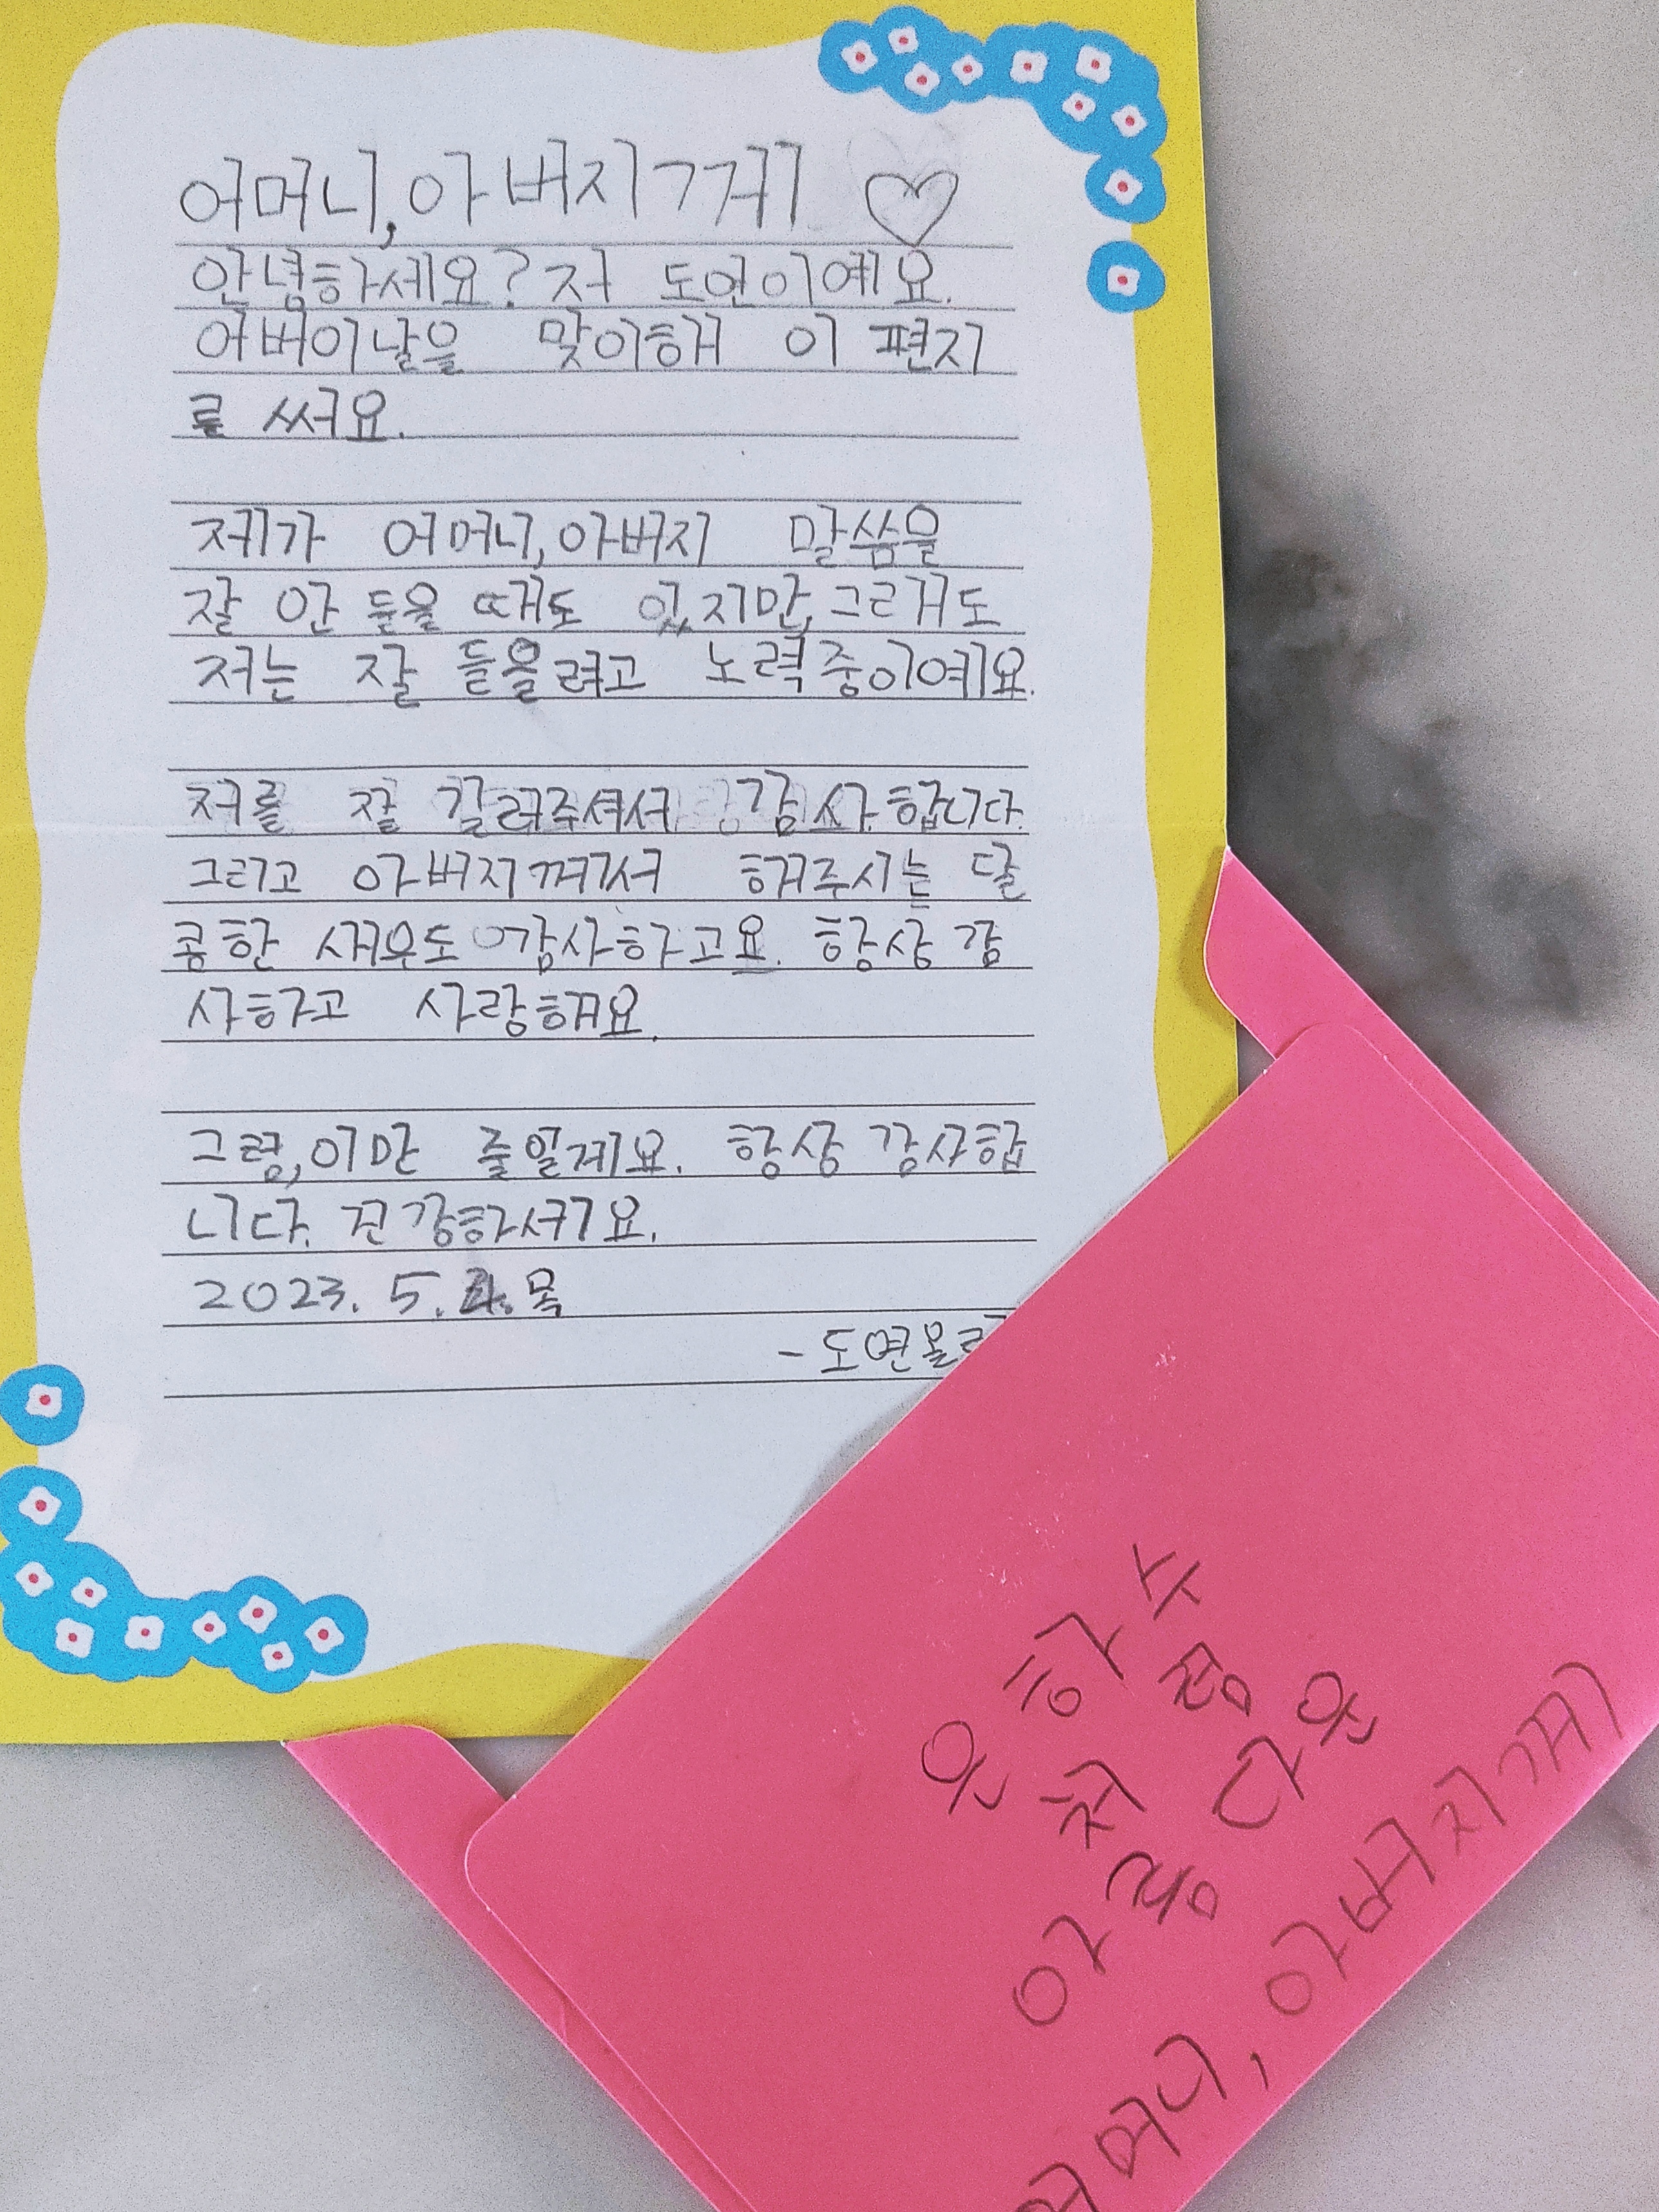 어머니, 아버지께 ♡
안녕하세요? 저 도연이예요.
어버이날을 맞이해 이 편지
를 써요.
제가 어머니, 아버지 말씀을
잘 안 들을 때도 있지만, 그래도
저는 잘 들을려고 노력중이예요.
저를 잘 길러주셔서 감사합니다.
그리고 아버지께서 해주시는 달
콤한 새우도 감사하고요. 항상 감
사하고 사랑해요.
그럼, 이만 줄일게요. 항상 감사합
니다. 건강하세요.
2023. 5. 4. 목
-도연
은하수
처럼
아름다운
어머니, 아버지께